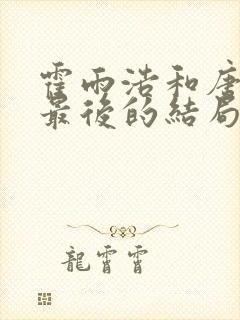 霍雨浩和唐
最後的結局
龍霄霄